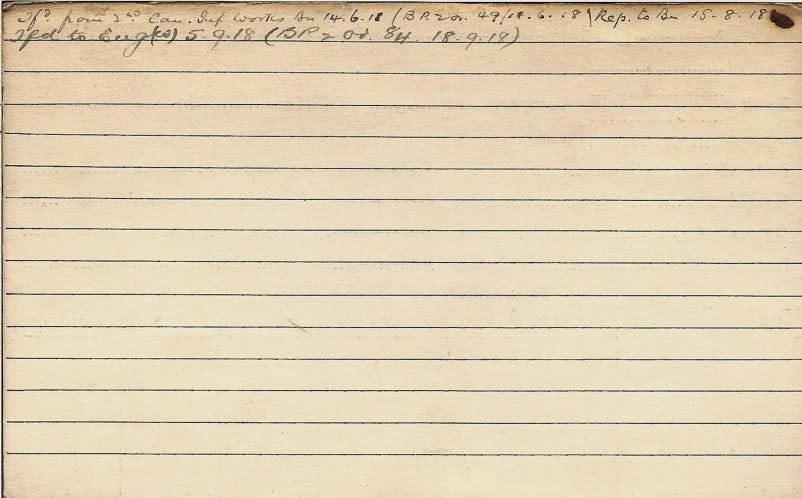 Tfd from 2nd Can. Inf Works Bn 14.6.18 (B.P. 2 or. 49/18.6.18) Rep. to Bn 15-8.18
Tfd to Eng(rs) 5.9.18 (B.P. 2 Od. 84. 18.9.18)